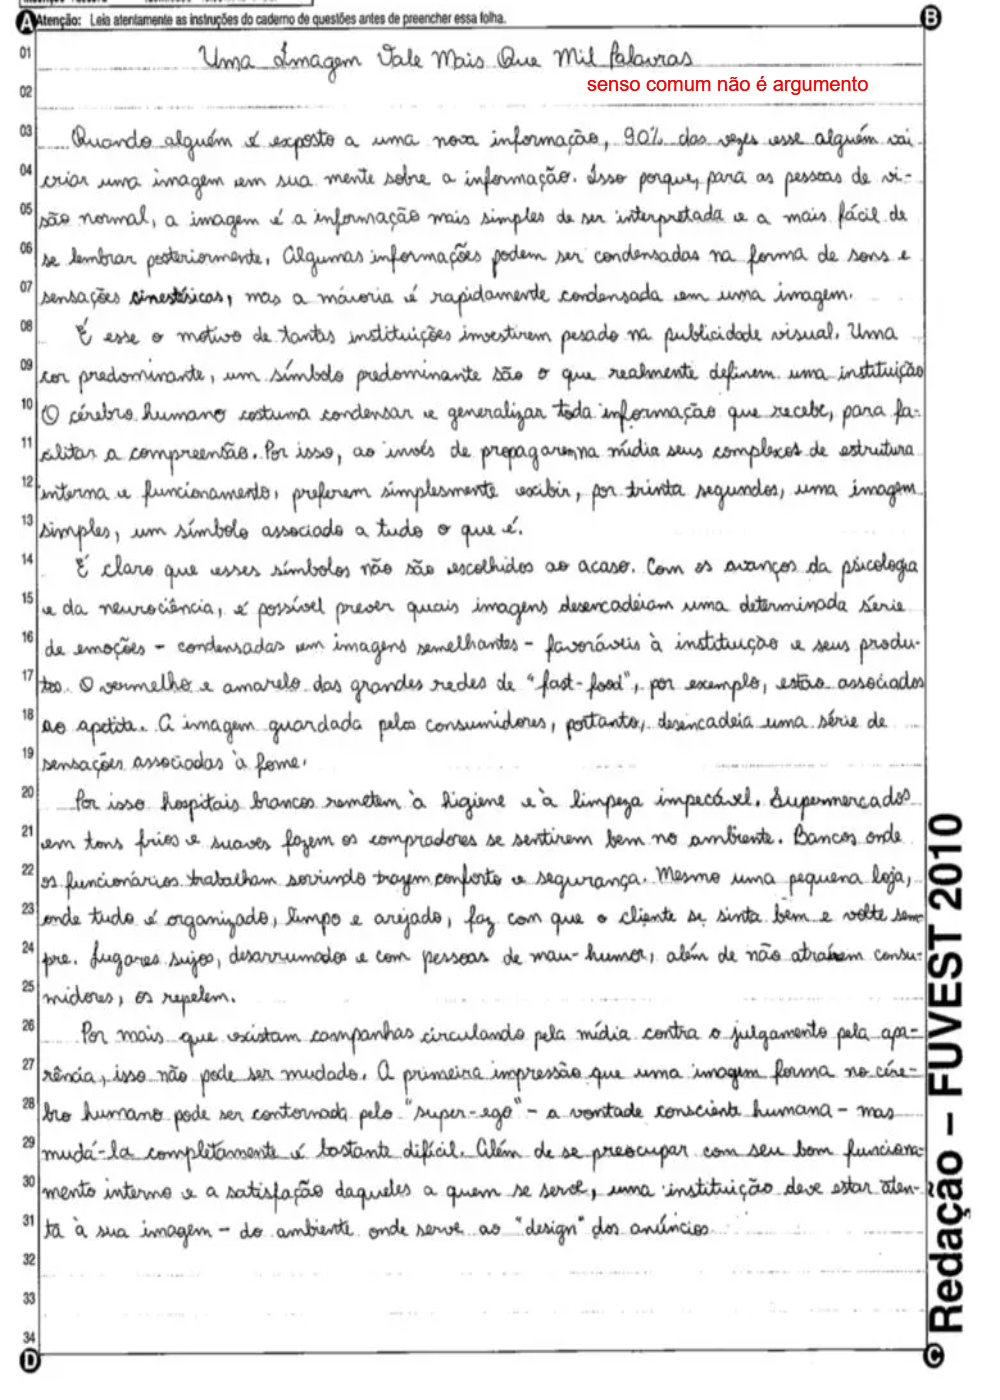 Atenção: Leia atentamente as instruções do caderno de questões antes de preencher essa folha.
A
B
01 Uma Imagem Vale Mais Que Mil Palavras
senso comum não é argumento
02
03 Quando alguém é exposto a uma nova informação, 90% das vezes esse alguém vai
04 criar uma imagem em sua mente sobre a informação. Isso porque, para as pessoas de vi-
05 são normal, a imagem é a informação mais simples de ser interpretada e a mais fácil de
06 se lembrar posteriormente. Algumas informações podem ser condensadas na forma de sons e
07 sensações sinestésicas, mas a maioria é rapidamente condensada em uma imagem.
08 É esse o motivo de tantas instituições investirem pesado na publicidade visual. Uma
09 cor predominante, um símbolo predominante são o que realmente definem uma instituição
10 O cérebro humano costuma condensar e generalizar toda informação que recebe, para fa-
11 cilitar a compreensão. Por isso, ao invés de propagarem na mídia seus complexos de estrutura
12 interna e funcionamento, preferem simplesmente exibir, por trinta segundos, uma imagem
13 simples, um símbolo associado a tudo o que é.
14 É claro que esses símbolos não são escolhidos ao acaso. Com os avanços da psicologia
15 e da neurociência, é possível prever quais imagens desencadeiam uma determinada série
16 de emoções - condensadas em imagens semelhantes - favoráveis à instituição e seus produ-
17 tos. O vermelho e amarelo das grandes redes de "fast-food", por exemplo, estão associados
18 ao apetite. A imagem guardada pelos consumidores, portanto, desencadeia uma série de
19 sensações associadas à fome.
20 Por isso hospitais brancos remetem à higiene e à limpeza impecável. Supermercados
21 em tons frios e suaves fazem os compradores se sentirem bem no ambiente. Bancos onde
22 os funcionários trabalham sorrindo trazem conforto e segurança. Mesmo uma pequena loja,
23 onde tudo é organizado, limpo e arejado, faz com que o cliente se sinta bem e volte sem-
24 pre. Lugares sujos, desarrumados e com pessoas de mau-humor, além de não atraírem consu-
25 midores, os repelem.
26 Por mais que existam campanhas circulando pela mídia contra o julgamento pela apa-
27 rência, isso não pode ser mudado. A primeira impressão que uma imagem forma no cére-
28 bro humano pode ser contornada pelo "super-ego" - a vontade consciente humana - mas
29 mudá-la completamente é bastante difícil. Além de se preocupar com seu bom funciona-
30 mento interno e a satisfação daqueles a quem se serve, uma instituição deve estar aten-
31 ta à sua imagem - do ambiente onde serve ao "design" dos anúncios
32
33
34
D
C
Redação – FUVEST 2010